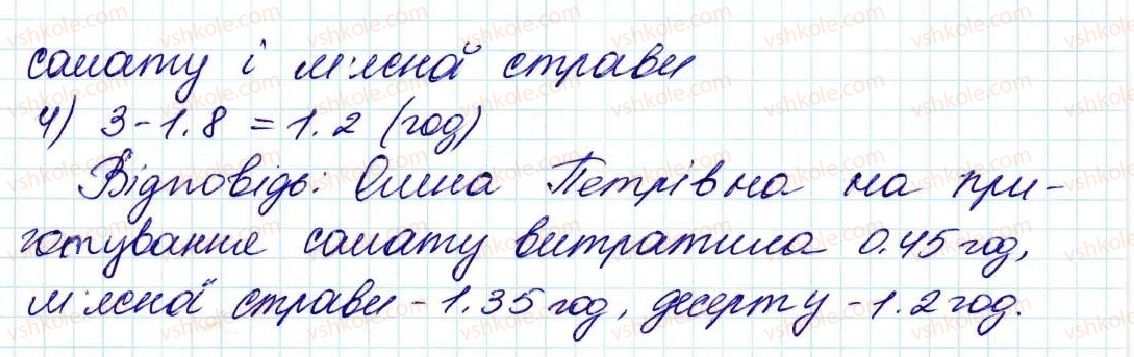 салату і м'ясної страви
4) 3-1.8 = 1.2 (год)
Відповідь: Олена Петрівна на при-
готування салату витратила 0.45 год,
м'ясної страви - 1.35 год, десерту - 1.2 год.
vshkole.com